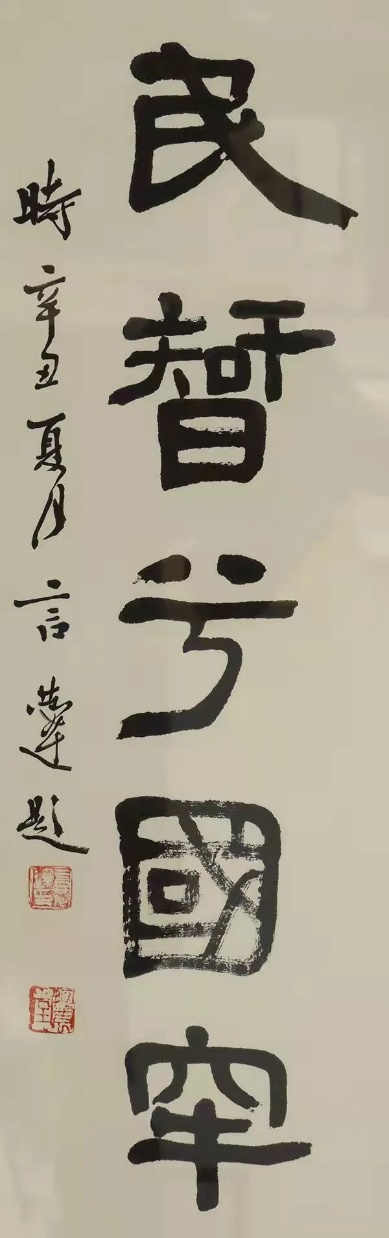 民智兮國罕
時辛丑夏月言恭達題